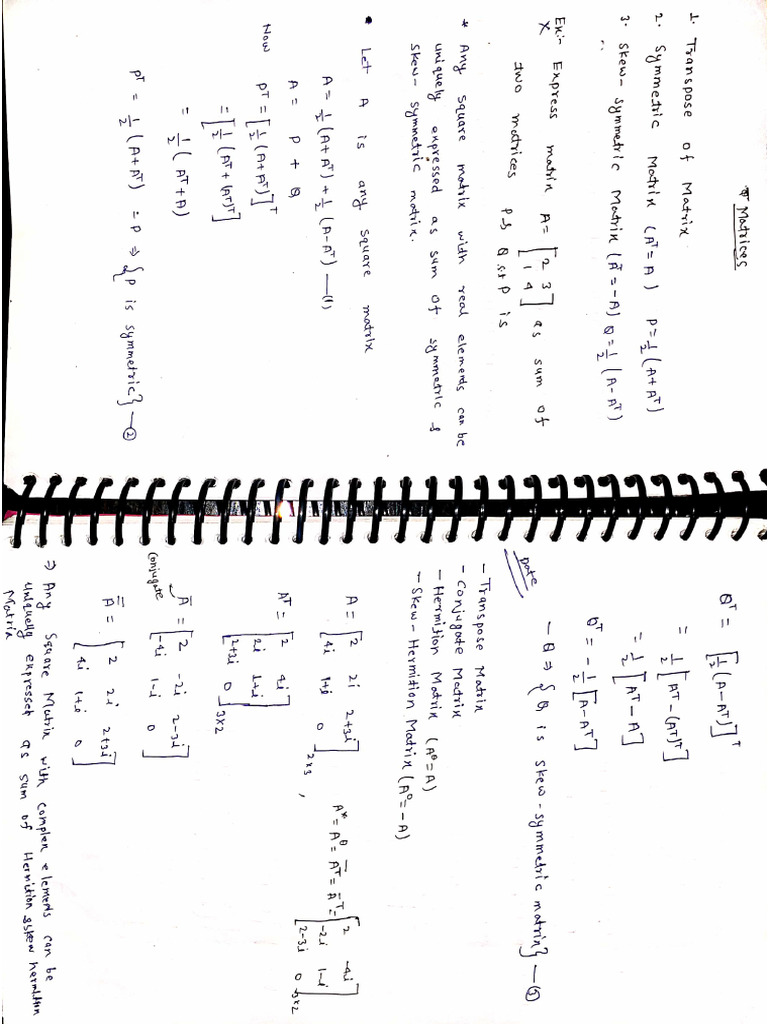 * Matrices
1. Transpose of Matrix
2. Symmetric Matrix (Aᵀ = A) P = 1/2 (A + Aᵀ)
3. Skew-symmetric Matrix (Aᵀ = -A) Q = 1/2 (A - Aᵀ)
Ex:- Express matrix A = [2 3; 1 4] as sum of
two matrices P & Q s.t P is
* Any square matrix with real elements can be
uniquely expressed as sum of symmetric &
skew-symmetric matrix.
• Let A is any square matrix
A = 1/2 (A + Aᵀ) + 1/2 (A - Aᵀ) —(1)
A = P + Q
Now Pᵀ = [1/2 (A + Aᵀ)]ᵀ
= [1/2 (Aᵀ + (Aᵀ)ᵀ]
= 1/2 (Aᵀ + A)
Pᵀ = 1/2 (A + Aᵀ) = P ⇒ {P is symmetric} —(2)
Qᵀ = [1/2 (A - Aᵀ)]ᵀ
= 1/2 [Aᵀ - (Aᵀ)ᵀ]
= 1/2 [Aᵀ - A]
Qᵀ = -1/2 [A - Aᵀ]
-Q ⇒ {Q is skew-symmetric matrix} —(3)
Date
- Transpose Matrix
- Conjugate Matrix
- Hermition Matrix (Aᶿ = A)
- Skew-Hermition Matrix (Aᶿ = -A)
A = [2 2i 2+3i; 4i 1+i 0] 2×3 , A* = Aᶿ = A̅ᵀ = A̅ᵀ = [2 -4i; -2i 1-i; 2-3i 0] 3×2
Aᵀ = [2 4i; 2i 1+i; 2+3i 0] 3×2
Conjugate A̅ = [2 -2i 2-3i; -4i 1-i 0]
A̿ = [2 2i 2+3i; 4i 1+i 0]
⇒ Any Square Matrix with complex elements can be
uniquely expressed as sum of Hermition & skew hermition
Matrix